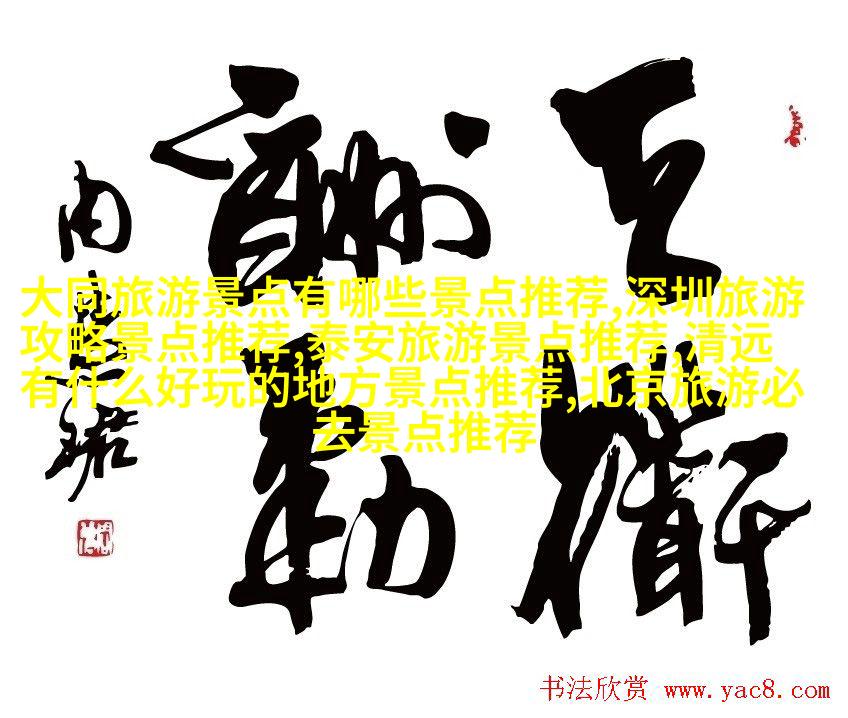 天道
酬勤
大同旅游景点有哪些景点推荐,深圳旅游
攻略景点推荐,泰安旅游景点推荐,清远
有什么好玩的地方景点推荐,北京旅游必
去景点推荐
书法欣赏 www.yac8.com